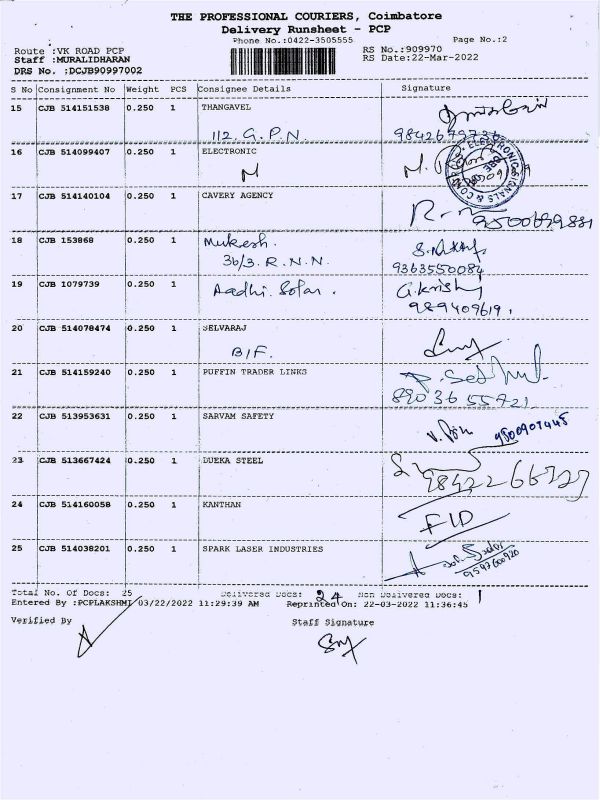 THE PROFESSIONAL COURIERS, Coimbatore
Delivery Runsheet - PCP
Phone No.:0422-3505555 Page No.:2
Route :VK ROAD PCP RS No.:909970
Staff :MURALIDHARAN RS Date:22-Mar-2022
DRS No. :DCJB90997002
S No Consignment No Weight PCS Consignee Details Signature
15 CJB 514151538 0.250 1 THANGAVEL
112, G.P.N.
16 CJB 514099407 0.250 1 ELECTRONIC
M
17 CJB 514140104 0.250 1 CAVERY AGENCY
18 CJB 153868 0.250 1 Mukesh.
36/3. R.N.N. 9363550084
19 CJB 1079739 0.250 1 Aadhi Solar. G.krish
989409619,
20 CJB 514078474 0.250 1 SELVARAJ
B/F.
21 CJB 514159240 0.250 1 PUFFIN TRADER LINKS
8903655721
22 CJB 513953631 0.250 1 SARVAM SAFETY
23 CJB 513667424 0.250 1 DUEKA STEEL
24 CJB 514160058 0.250 1 KANTHAN
F1D
25 CJB 514038201 0.250 1 SPARK LASER INDUSTRIES
9597600920
Total No. Of Docs: 25 Delivered Docs: 24 Non Delivered Docs: 1
Entered By :PCPLAKSHMI 03/22/2022 11:29:39 AM Reprinted On: 22-03-2022 11:36:45
Verified By Staff Signature